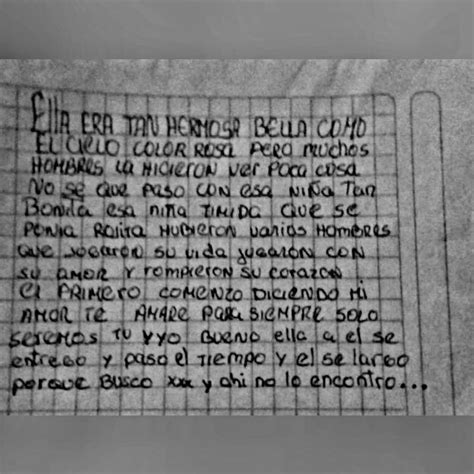 Ella era tan hermosa bella como
el cielo color rosa pero muchos
hombres la hicieron ver poca cosa
no se que paso con esa niña tan
bonita esa niña timida que se
ponia rojita hubieron varios hombres
que jogaron su vida jugaron con
su amor y rompieron su corazon
el primero comenzo diciendo mi
amor te amare para siempre solo
seremos tu y yo. bueno ella a el se
entrego y paso el tiempo y el se largo
porque busco xxx y ahi no lo encontro...